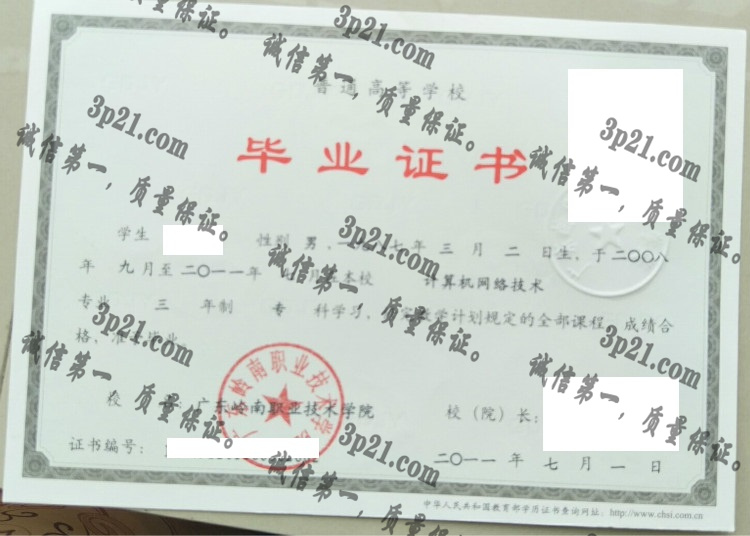 普通高等学校
毕业证书
学生 性别 男，一 七年 三 月 二 日生，于二〇〇八
年 九月至二〇一一年 月 本校 计算机网络技术
专业 三 年制 专 科学习， 教学计划规定的全部课程，成绩合
格，准 毕业。
校 广东岭南职业技术学院 校（院）长：
证书编号：
二〇一一 年 七 月 一 日
中华人民共和国教育部学历证书查询网址：http://www.chsi.com.cn
岭南职业技术学院
3p21.com
诚信第一，质量保证。
3p21.com
诚信第一，质量保证。
3p21.com
诚信第一，质量保证。
3p21.com
诚信第一，质量保证。
3p21.com
诚信第一，质量保证。
3p21.com
诚信第一，质量保证。
3p21.com
诚信第一，质量保证。
质量保证。